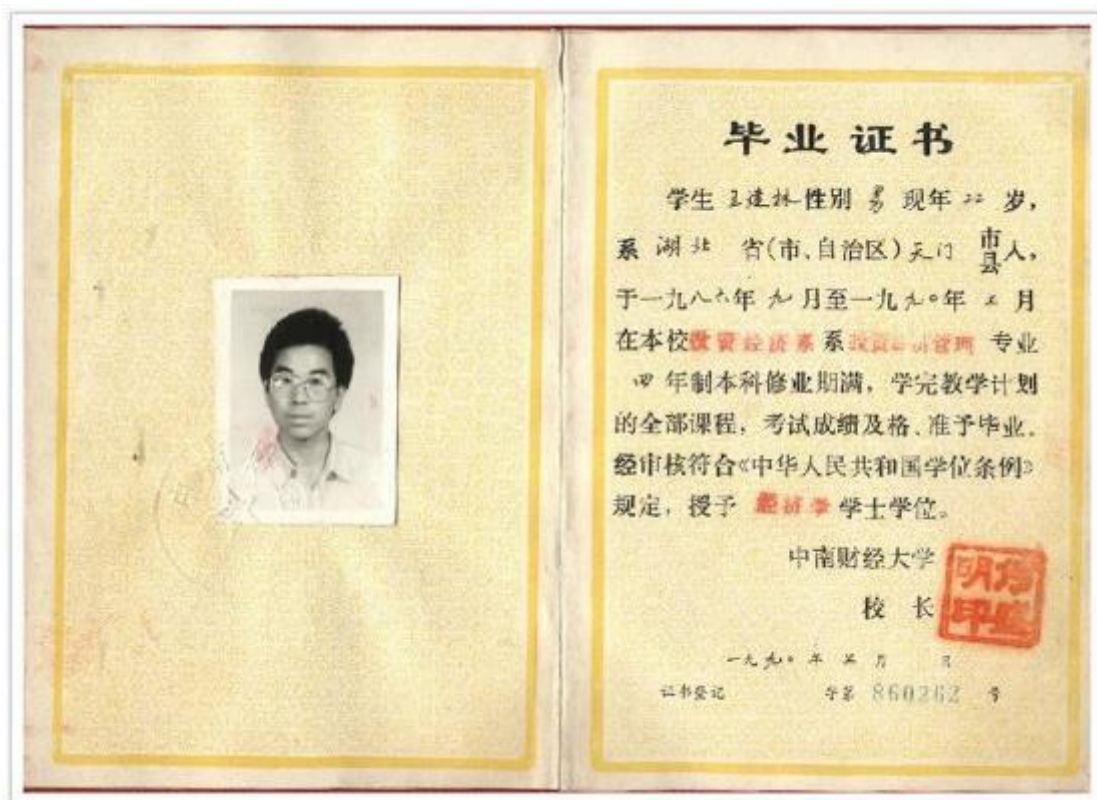 毕业证书
学生 王建林 性别 男 现年 二二 岁，
系 湖北 省(市、自治区)天门 市县人，
于一九八六年 九 月至一九九〇年 月
在本校投资经济系 系 投资经济管理 专业
四 年制本科修业期满，学完教学计划
的全部课程，考试成绩及格、准予毕业。
经审核符合《中华人民共和国学位条例》
规定，授予 经济学 学士学位。
中南财经大学
校 长
一九九〇 年 月 日
证书登记 字第 860262 号